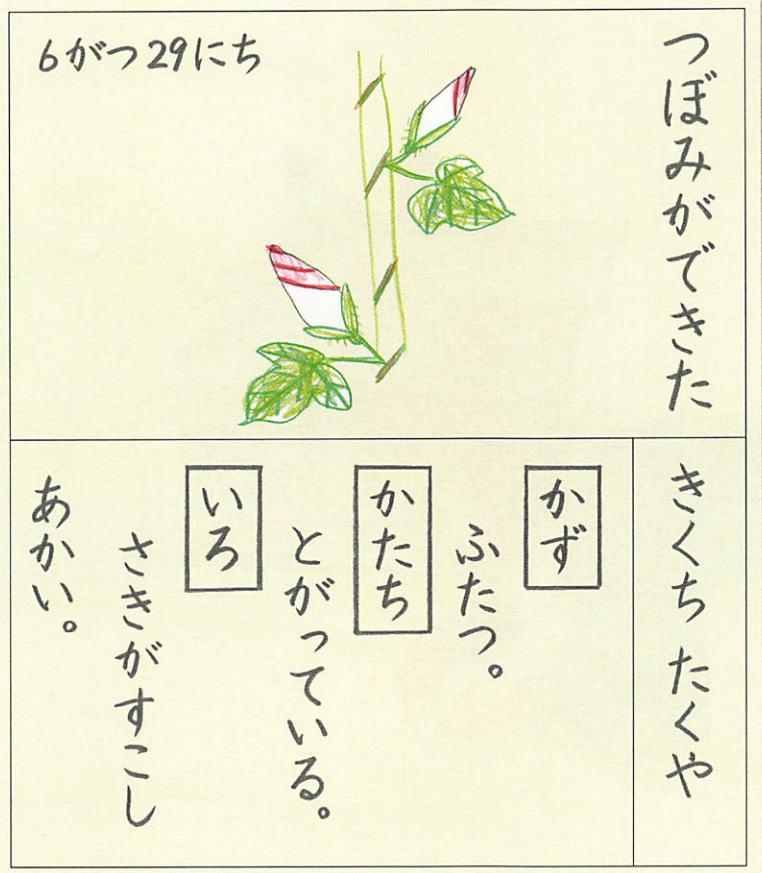 つぼみができた
6がつ29にち
きくち たくや
かず
ふたつ。
かたち
とがっている。
いろ
さきがすこし
あかい。